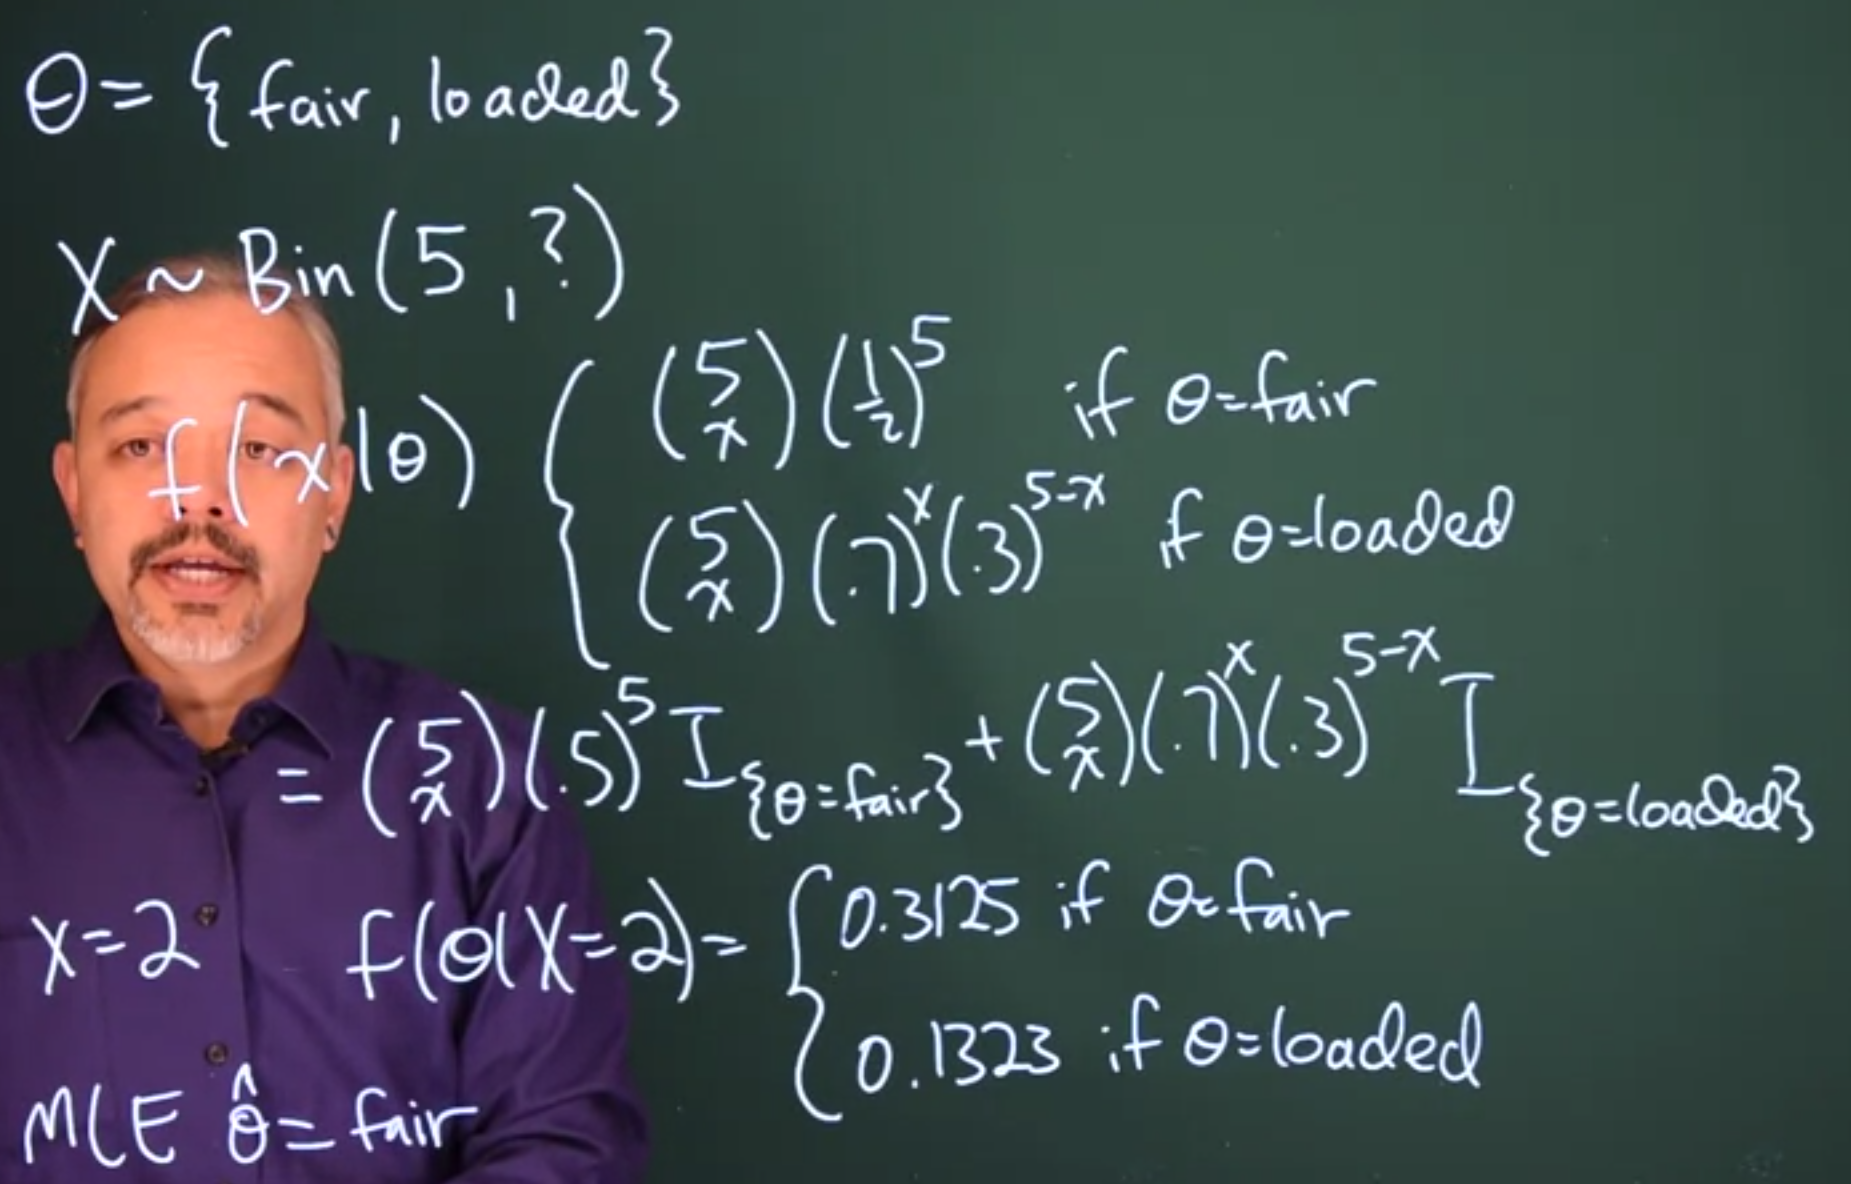 θ = {fair, loaded}
X ~ Bin(5, ?)
f(x|θ) { (5 x) (1/2)^5 if θ=fair
(5 x) (.7)^x (.3)^5-x if θ=loaded
= (5 x) (.5)^5 I {θ=fair} + (5 x) (.7)^x (.3)^5-x I {θ=loaded}
X=2 f(θ|X=2) = { 0.3125 if θ=fair
0.1323 if θ=loaded
MLE θ̂ = fair